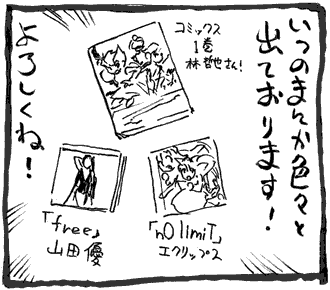 いつのまにか色々と
出ております!
コミックス
1巻
林哲也さん!
「nO limiT」
エクリップス
「free」
山田優
よろしくね!